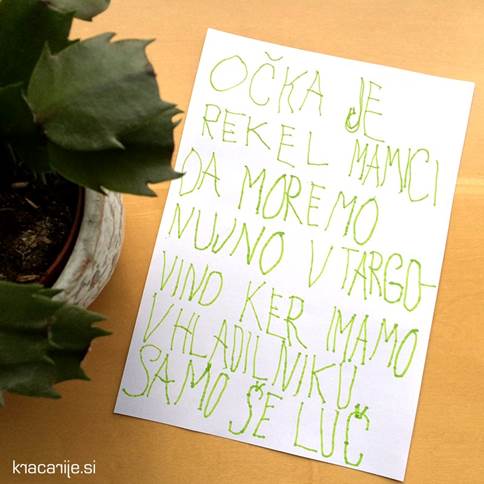 OČKA JE
REKEL MAMICI
DA MOREMO
NUJNO V TARGO-
VINO KER IMAMO
V HLADILNIKU
SAMO ŠE LUČ
kracarije.si